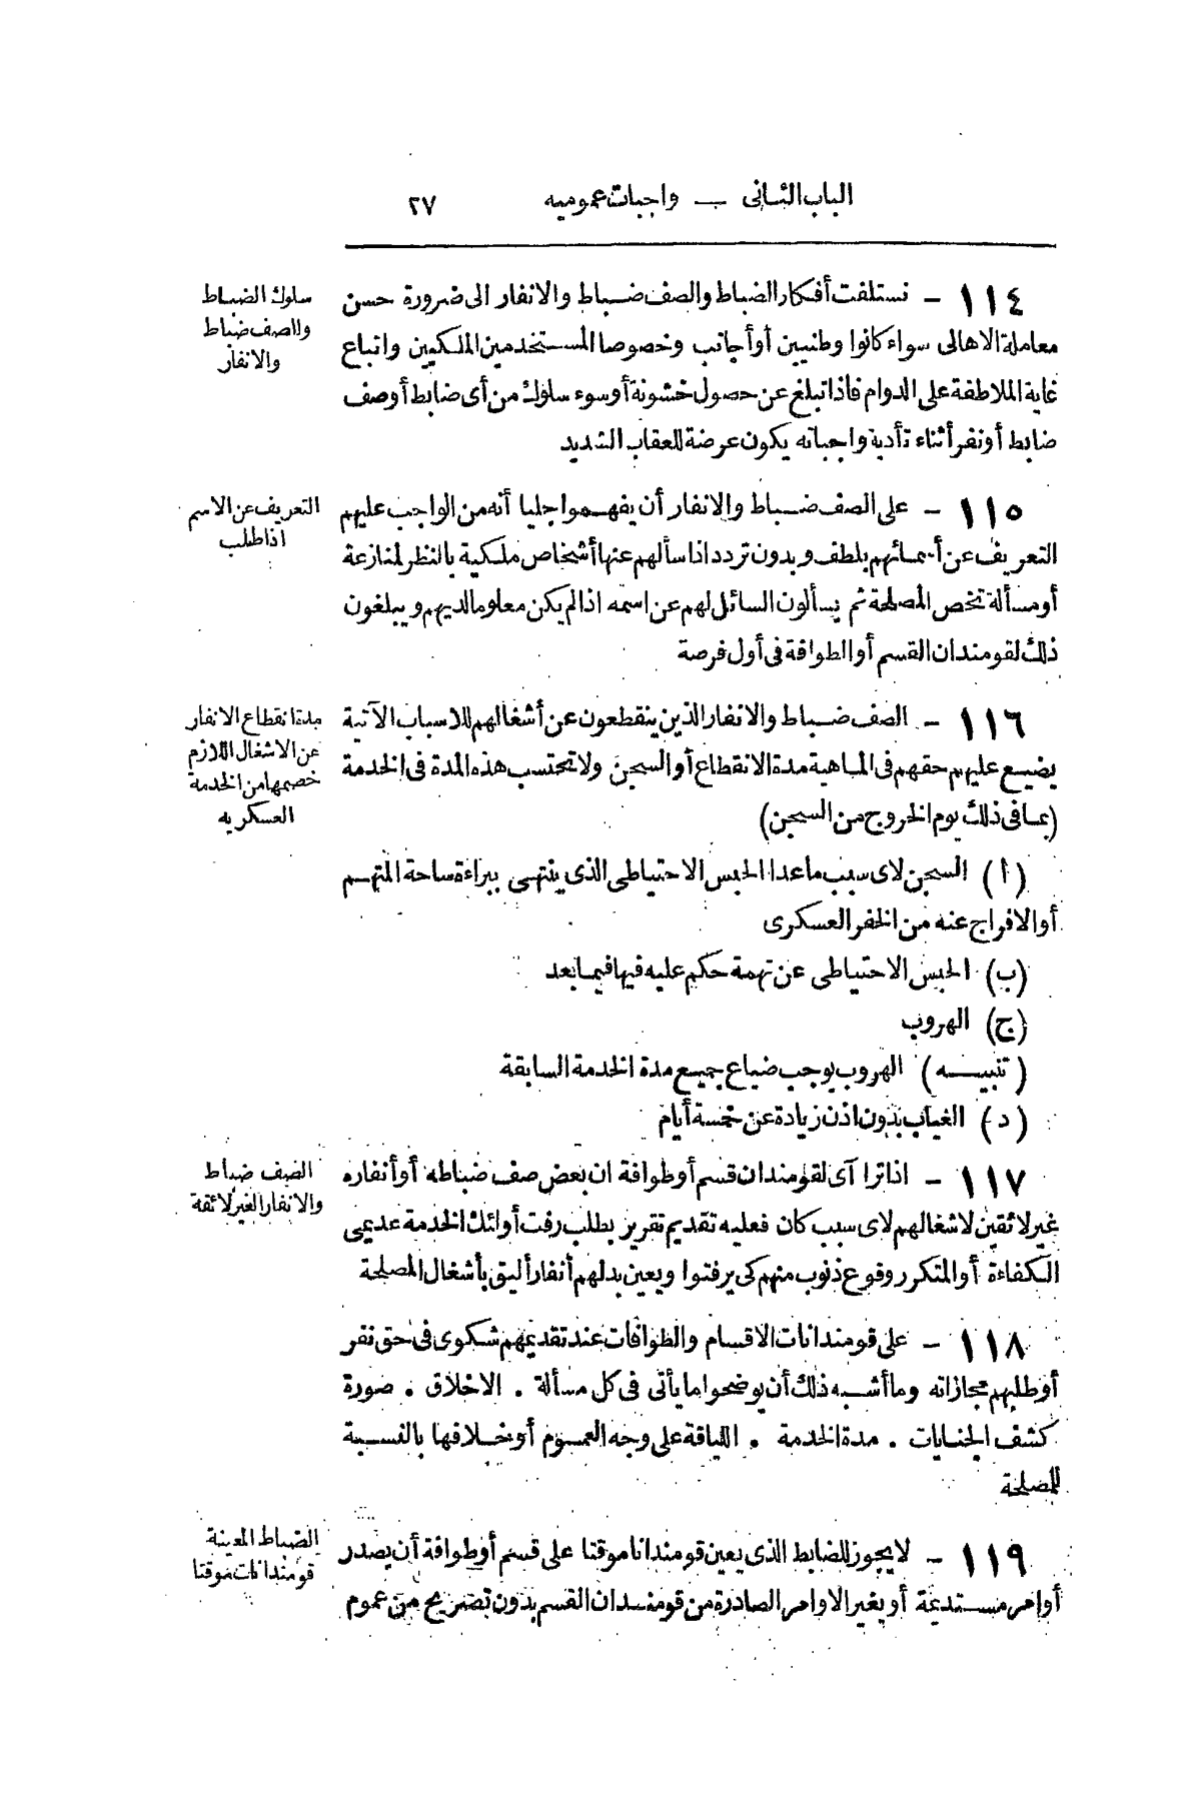 الباب الثانى — واجبات عموميه ٢٧
١١٤ - نستلفت أفكار الضباط والصف ضباط والانفار الى ضرورة حسن
معاملة الاهالى سواء كانوا وطنيين أو أجانب وخصوصا المستخدمين الملكيين واتباع
غاية الملاطفة على الدوام فاذا تبلغ عن حصول خشونة أو سوء سلوك من أى ضابط أو صف
ضابط أو نفر أثناء تأدية واجباته يكون عرضة للعقاب الشديد
سلوك الضباط
والصف ضباط
والانفار
١١٥ - على الصف ضباط والانفار أن يفهموا جليا أنه من الواجب عليهم
التعريف عن أسمائهم بلطف وبدون تردد اذا سألهم عنها أشخاص ملكية بالنظر لمنازعة
أو مسألة تخص المصلحة ثم يسألون السائل لهم عن اسمه اذا لم يكن معلوما لديهم ويبلغون
ذلك لقومندان القسم أو الطوافة فى أول فرصة
التعريف عن الاسم
اذا طلب
١١٦ - الصف ضباط والانفار الذين ينقطعون عن أشغالهم للاسباب الآتية
يضيع عليهم حقهم فى الماهية مدة الانقطاع أو السجن ولا تحتسب هذه المدة فى الخدمة
(بما فى ذلك يوم الخروج من السجن)
مدة انقطاع الانفار
عن الاشغال اللازم
خصمها من الخدمة
العسكريه
(ا) السجن لاى سبب ما عدا الحبس الاحتياطى الذى ينتهى ببراءة ساحة المتهم
أو الافراج عنه من الخفر العسكرى
(ب) الحبس الاحتياطى عن تهمة حكم عليه فيها فيما بعد
(ج) الهروب
(تنبيه) الهروب يوجب ضياع جميع مدة الخدمة السابقة
(د) الغياب بدون اذن زيادة عن خمسة أيام
١١٧ - اذا ترا آى لقومندان قسم أو طوافة ان بعض صف ضباطه أو أنفاره
غير لائقين لاشغالهم لاى سبب كان فعليه تقديم تقرير بطلب رفت أولئك الخدمة عديمى
الكفاءة أو المتكرر وقوع ذنوب منهم كى يرفتوا ويعين بدلهم أنفار أليق بأشغال المصلحة
الصف ضباط
والانفار الغير لائقة
١١٨ - على قومندانات الاقسام والطوافات عند تقديمهم شكوى فى حق نفر
أو طلبهم مجازاته وما أشبه ذلك أن يوضحوا ما يأتى فى كل مسألة . الاخلاق . صورة
كشف الجنايات . مدة الخدمة . اللياقة على وجه العموم أو خلافها بالنسبة
للمصلحة
١١٩ - لا يجوز للضابط الذى يعين قومندانا موقتا على قسم أو طوافة أن يصدر
أوامر مستديمة أو يغير الاوامر الصادرة من قومندان القسم بدون تصريح من عموم
الضباط المعينة
قومندانات موقتا